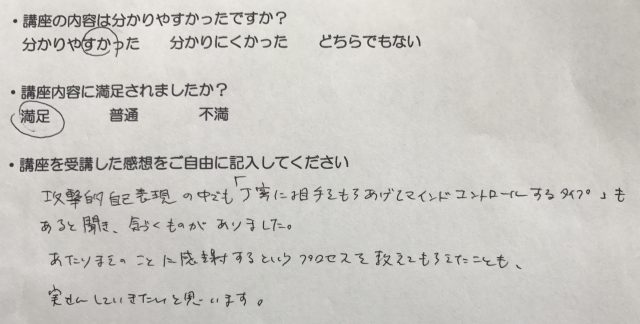 ・講座の内容は分かりやすかったですか？
分かりやすかった 分かりにくかった どちらでもない
・講座内容に満足されましたか？
満足 普通 不満
・講座を受講した感想をご自由に記入してください
攻撃的自己表現の中でも「丁寧に相手をもちあげてマインドコントロールするタイプ」も
あると聞き、気づくものがありました。
あたりまえのことに感謝するというプロセスを教えてもらえたことも、
実せんしていきたいと思います。